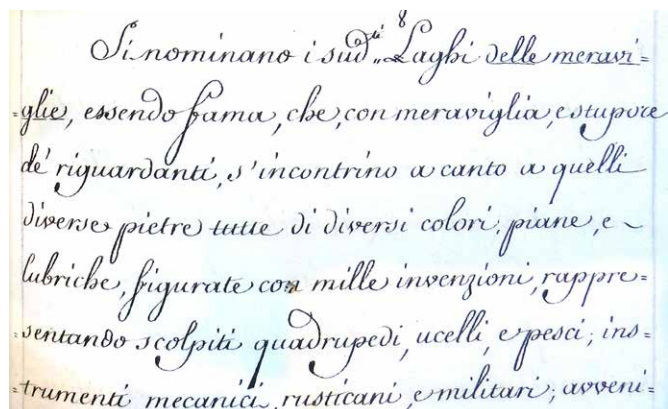 8
Si nominano i sud.ti Laghi delle meravi=
=glie, essendo fama, che, con meraviglia, e stupore
de' riguardanti, s'incontrino a canto a quelli
diverse pietre tutte di diversi colori, piane, e
lubriche, figurate con mille invenzioni, rappre=
=sentando scolpiti quadrupedi, ucelli, e pesci; ins=
=trumenti mecanici, rusticani, e militari; avveni=